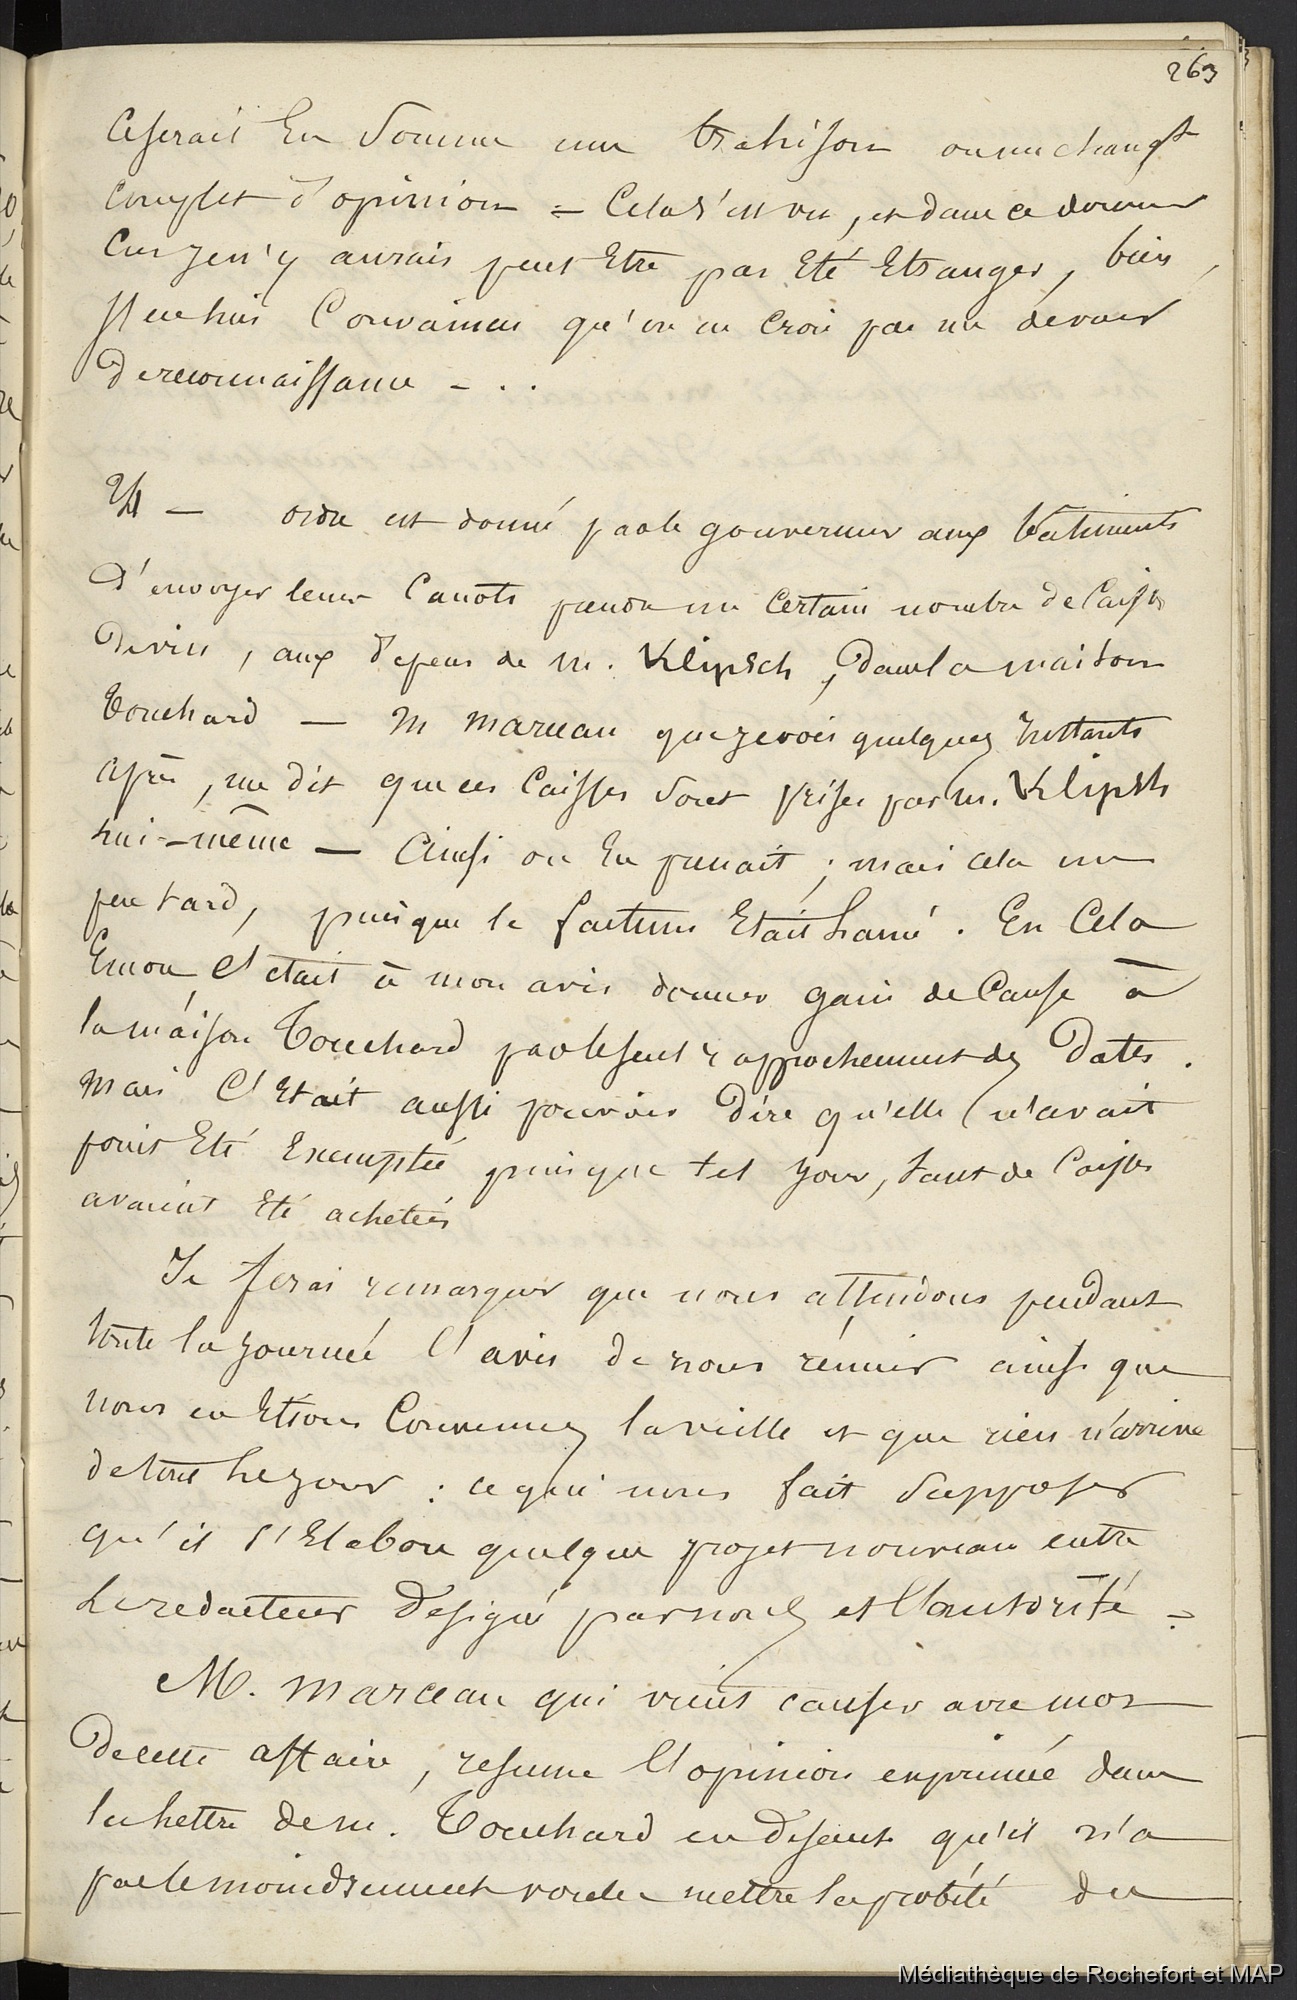 263
Ce serait En Somme une trahison ou un changt
complet d'opinion = Cela s'est vu, et dans ce dernier
Cas je n'y aurais peut Etre pas Eté Etranger, bien
que suis Convaincu qu'on ne croit pas un devoir
de reconnaissance - . .
24 — ordre est donné par le gouverneur aux bâtiments
d'envoyer leurs Canots prendre un certain nombre de Caisses
de vin, aux depens de M. Klipsch, dans la maison
Touchard — M Marceau que je vois quelques instants
après, me dit que ces Caisses sont prises par M. Klipsch
lui-même — Ainsi on En prenait ; mais cela un
peu tard, puisque le factum Etait lancé. En Cela
Encore C'était à mon avis donner gain de Cause à
la maison Touchard par le seul rapprochement des Dates.
Mais C'Etait aussi pouvoir dire qu'elle n'avait
point Eté Exemptée puisque tel jour, tant de Caisses
avaient Eté achetées
Je ferai remarquer que nous attendons pendant
toute la journée l'avis de nous réunir ainsi que
nous en Etions Convenus la veille et que rien n'arrive
de tout le jour : ce qui nous fait Supposer
qu'il s'Elabore quelque projet nouveau entre
le redacteur désigné par nous et l'autorité =
M. Marceau qui vient causer avec moi
de cette affaire, resume l'opinion exprimée dans
la lettre de M. Touchard en disant qu'il n'a
pas le moindrement voulu mettre la probité du
Médiathèque de Rochefort et MAP